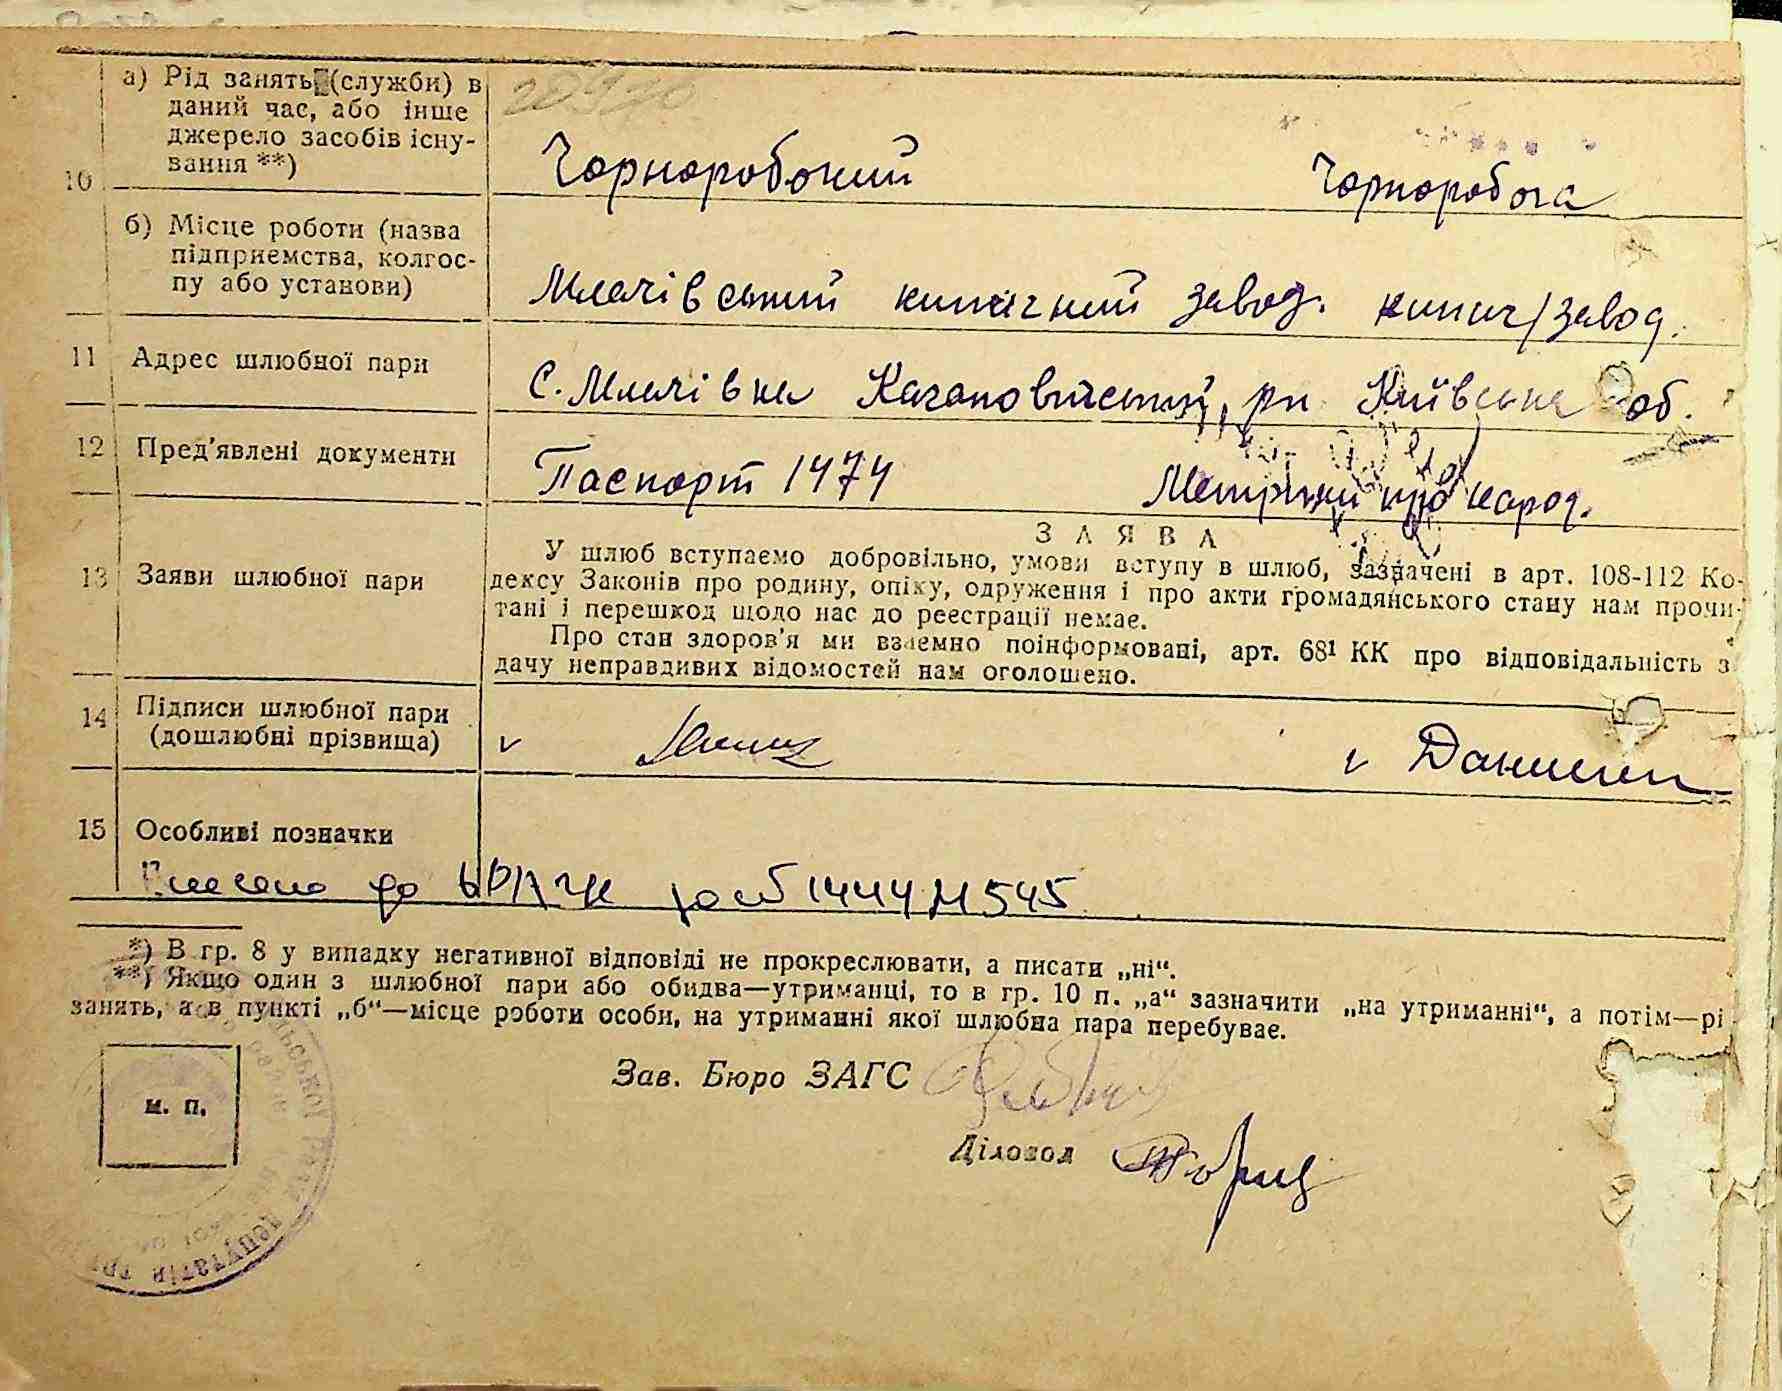 10
а) Рід занять (служби) в
даний час, або інше
джерело засобів існу-
вання **)
Чорноробочий Чорноробоча
б) Місце роботи (назва
підприємства, колгос-
пу або установи)
завод. завод.
11 Адрес шлюбної пари
С. Кагановичський рн Київська об.
12 Пред'явлені документи
Паспорт 1474 Метрики про народ.
13 Заяви шлюбної пари
ЗАЯВА
У шлюб вступаємо добровільно, умови вступу в шлюб, зазначені в арт. 108-112 Ко-
дексу Законів про родину, опіку, одруження і про акти громадянського стану нам прочи-
тані і перешкод щодо нас до реєстрації немає.
Про стан здоров'я ми взаємно поінформовані, арт. 68¹ КК про відповідальність з
дачу неправдивих відомостей нам оголошено.
14 Підписи шлюбної пари
(дошлюбні прізвища)
15 Особливі позначки
до 545
*) В гр. 8 у випадку негативної відповіді не прокреслювати, а писати „ні“.
**) Якщо один з шлюбної пари або обидва—утриманці, то в гр. 10 п. „а“ зазначити „на утриманні“, а потім—рі
занять, а в пункті „б“—місце роботи особи, на утриманні якої шлюбна пара перебуває.
Зав. Бюро ЗАГС
Діловод
м. п.